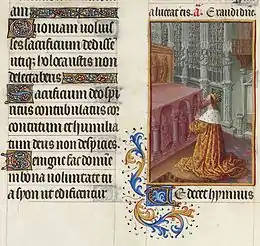 Quoniam voluis
ses sacrificium dedisse
utiq holocaustis non
delectaberis
Sacrificium deo spi
ritus contribulatus cor
contritum et humilia
tum deus non despicies
Benigne fac domine
in bona voluntate tu
a syon ut edificentur
a. Exaudi dne.
Te decet hymnus